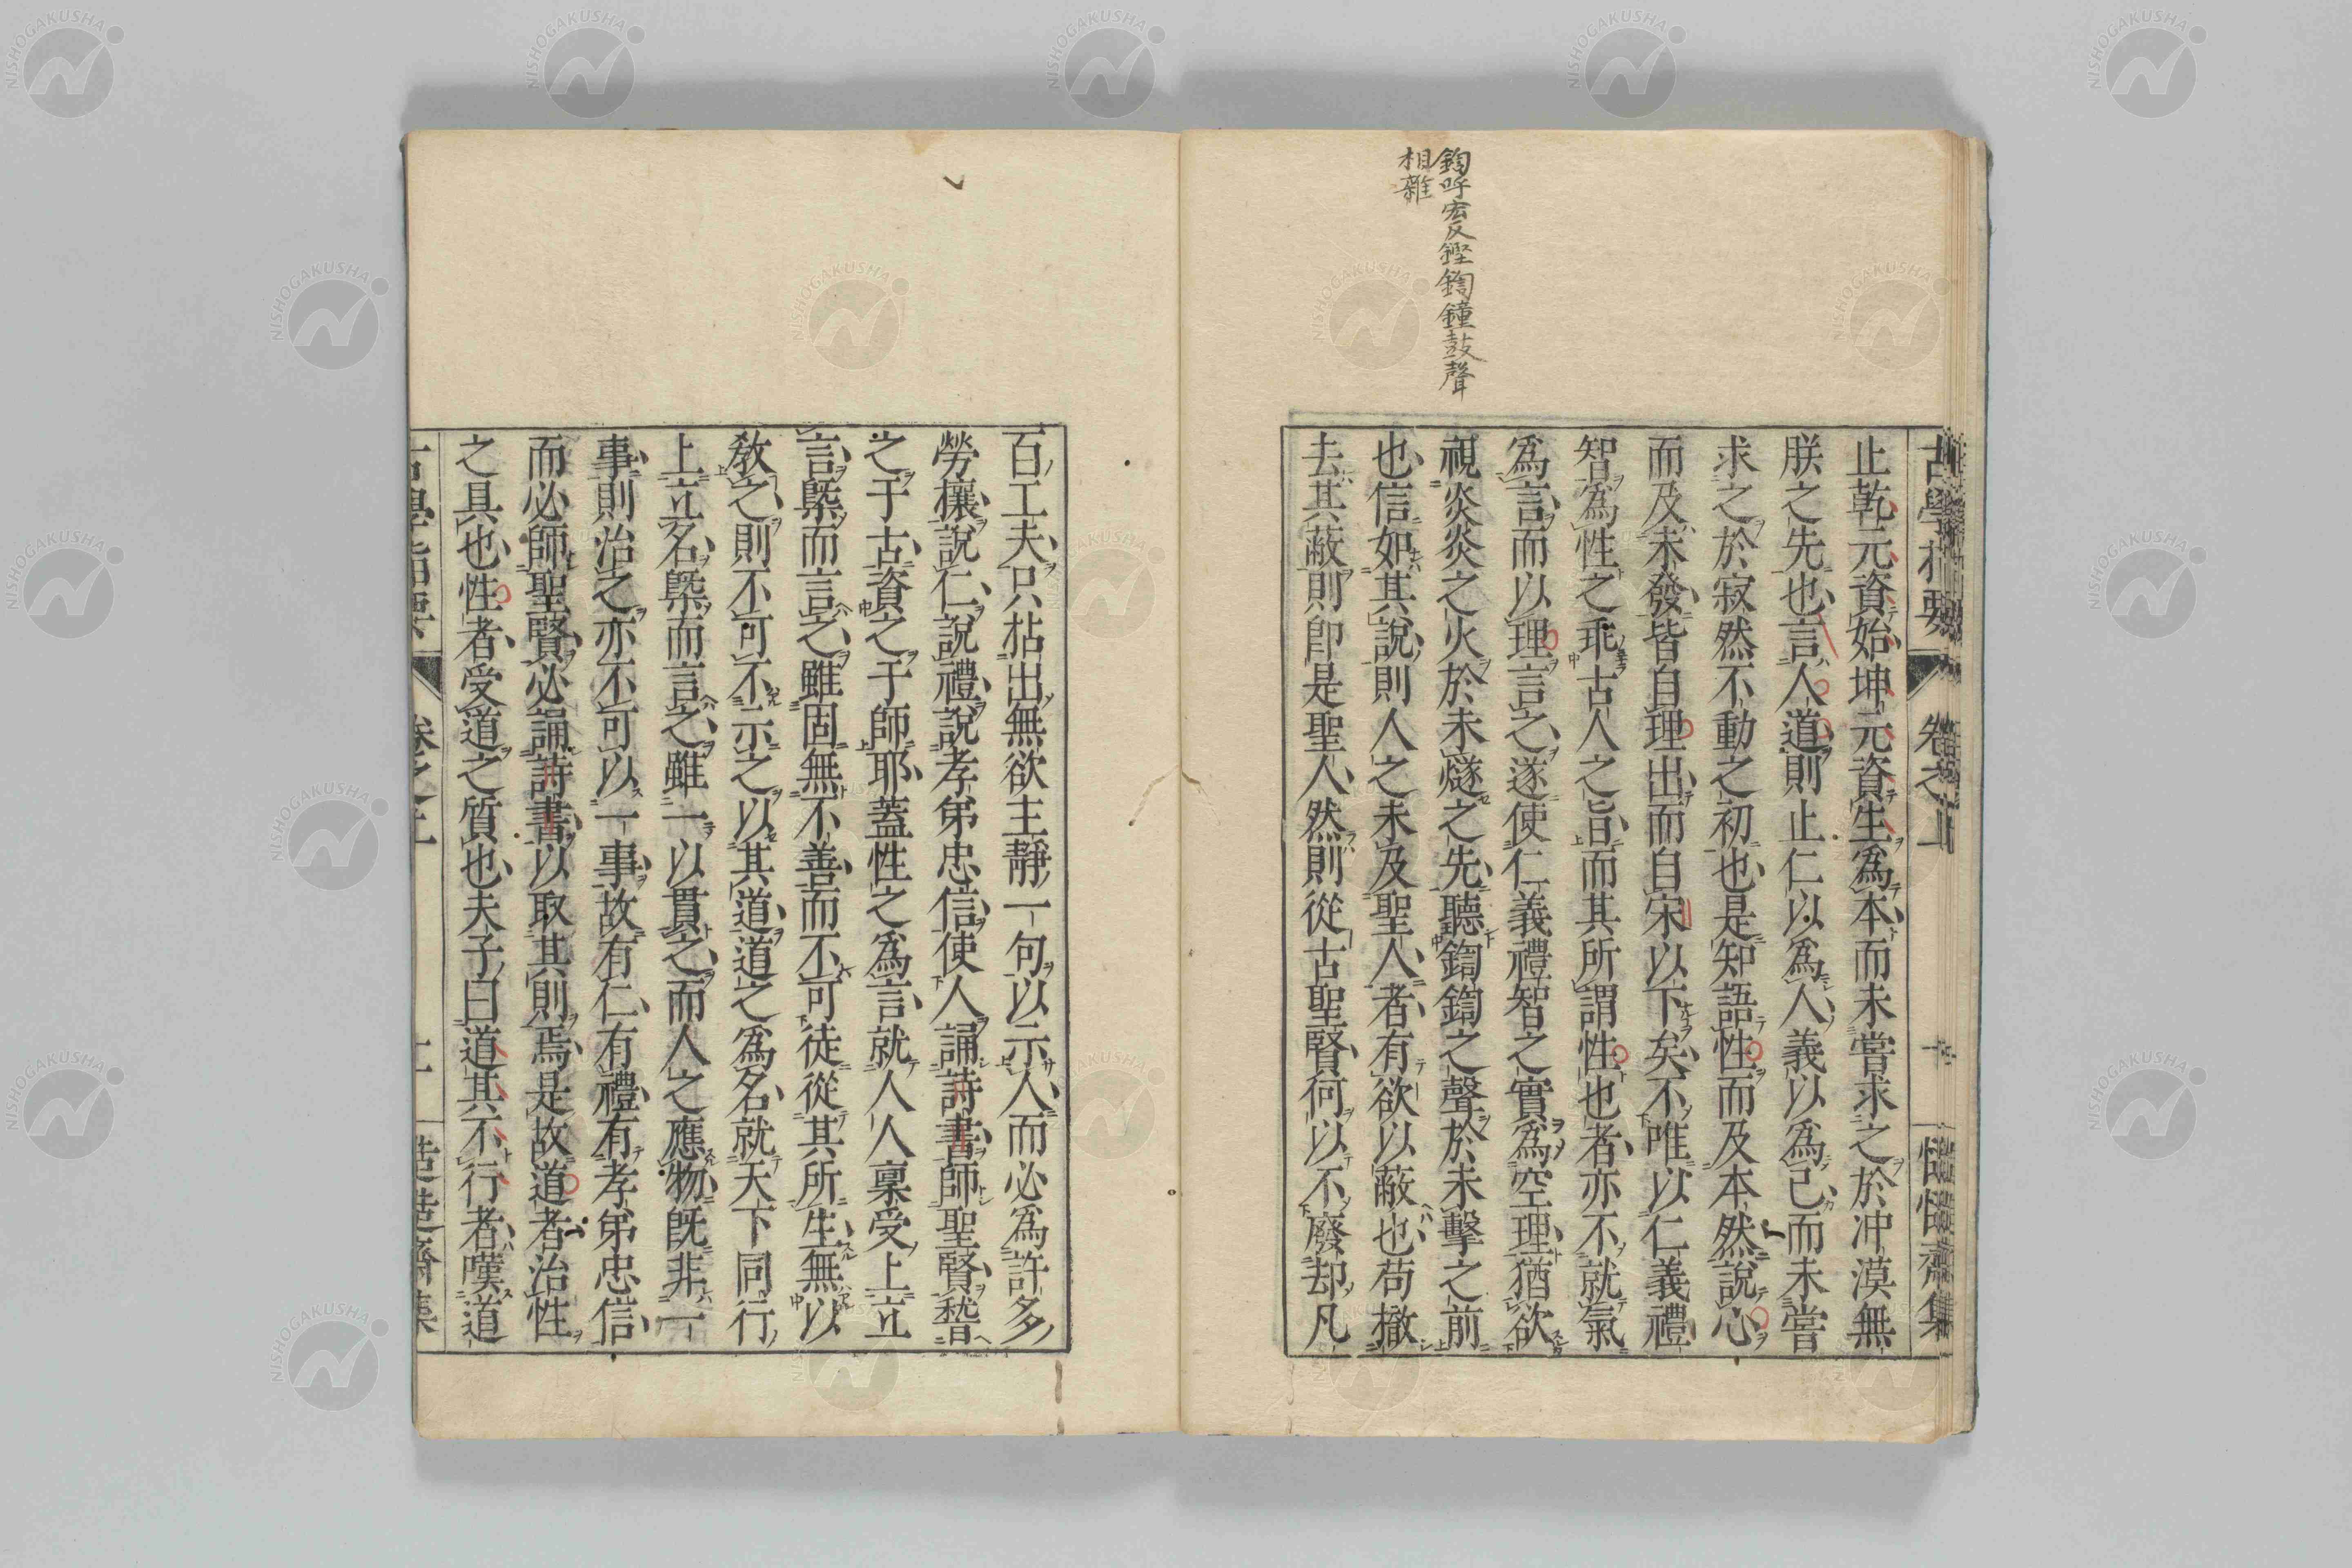 鍧呼宏反鏗鍧鐘鼓聲
相雜
止乾元資始坤元資生爲本而未嘗求之於冲漠無
朕之先也言人道則止仁以爲人義以爲己而未嘗
求之於寂然不動之初也是知語性而及本然說心
而及未發皆自理出而自宋以下矣不唯以仁義禮
智爲性之乖古人之旨而其所謂性也者亦不就氣
爲言而以理言之遂使仁義禮智之實爲空理猶欲
視炎炎之火於未燧之先聽鍧鍧之聲於未擊之前
也信如其說則人之未及聖人者有欲以蔽也苟撤
去其蔽則卽是聖人然則從古聖賢何以不廢却凡
百工夫只拈出無欲主靜一句以示人而必爲許多
勞攘說仁說禮說孝弟忠信使人誦詩書師聖賢嵆
之于古資之于師耶蓋性之爲言就人人稟受上立
言槩而言之雖固無不善而不可徒從其所生無以
敎之則不可不示之以其道道之爲名就天下同行
上立名槩而言之雖一以貫之而人之應物旣非一
事則治之亦不可以一事故有仁有禮有孝弟忠信
而必師聖賢必誦詩書以取其則焉是故道者治性
之具也性者受道之質也夫子曰道其不行者嘆道
古學指要
卷之上
NISHOGAKUSHA